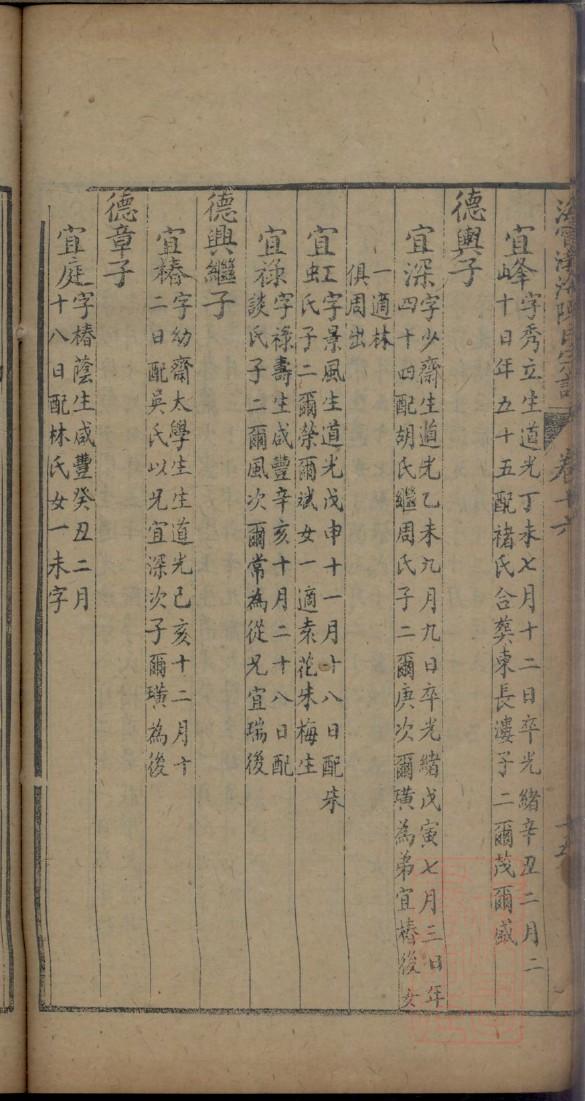 卷十六
宜峰字秀立生道光丁未七月十二日卒光緒辛丑二月二
十日年五十五配褚氏合葬東長漊子二爾茂爾盛
德輿子
宜深字少齋生道光乙未九月九日卒光緒戊寅七月三日年
四十四配胡氏繼周氏子二爾庚次爾璜為弟宜椿後女
一適林
俱周出
宜虹字景風生道光戊申十一月十八日配朱
氏子二爾榮爾斌女一適袁花朱梅生
宜祿字祿壽生咸豐辛亥十月二十八日配
談氏子二爾風次爾常為從兄宜瑞後
德興繼子
宜椿字幼齋太學生生道光己亥十二月十
二日配吳氏以兄宜深次子爾璜為後
德章子
宜庭字椿蔭生咸豐癸丑二月
十八日配林氏女一未字